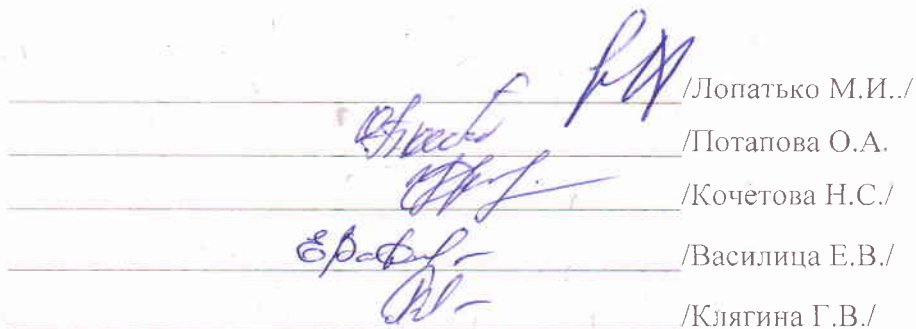 /Лопатько М.И../
/Потапова О.А.
/Кочетова Н.С./
/Василица Е.В./
/Клягина Г.В./